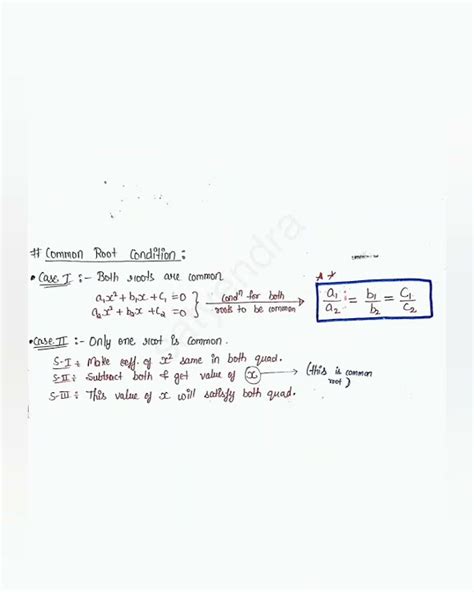 # Common Root Condition :
• Case. I :- Both roots are common
a₁x² + b₁x + C₁ = 0
a₂x² + b₂x + C₂ = 0
condⁿ for both roots to be common
a₁/a₂ = b₁/b₂ = C₁/C₂
• Case. II :- Only one root is common.
S-I : Make coeff. of x² same in both quad.
S-II : Subtract both & get value of x → (this is common root)
S-III : This value of x will satisfy both quad.